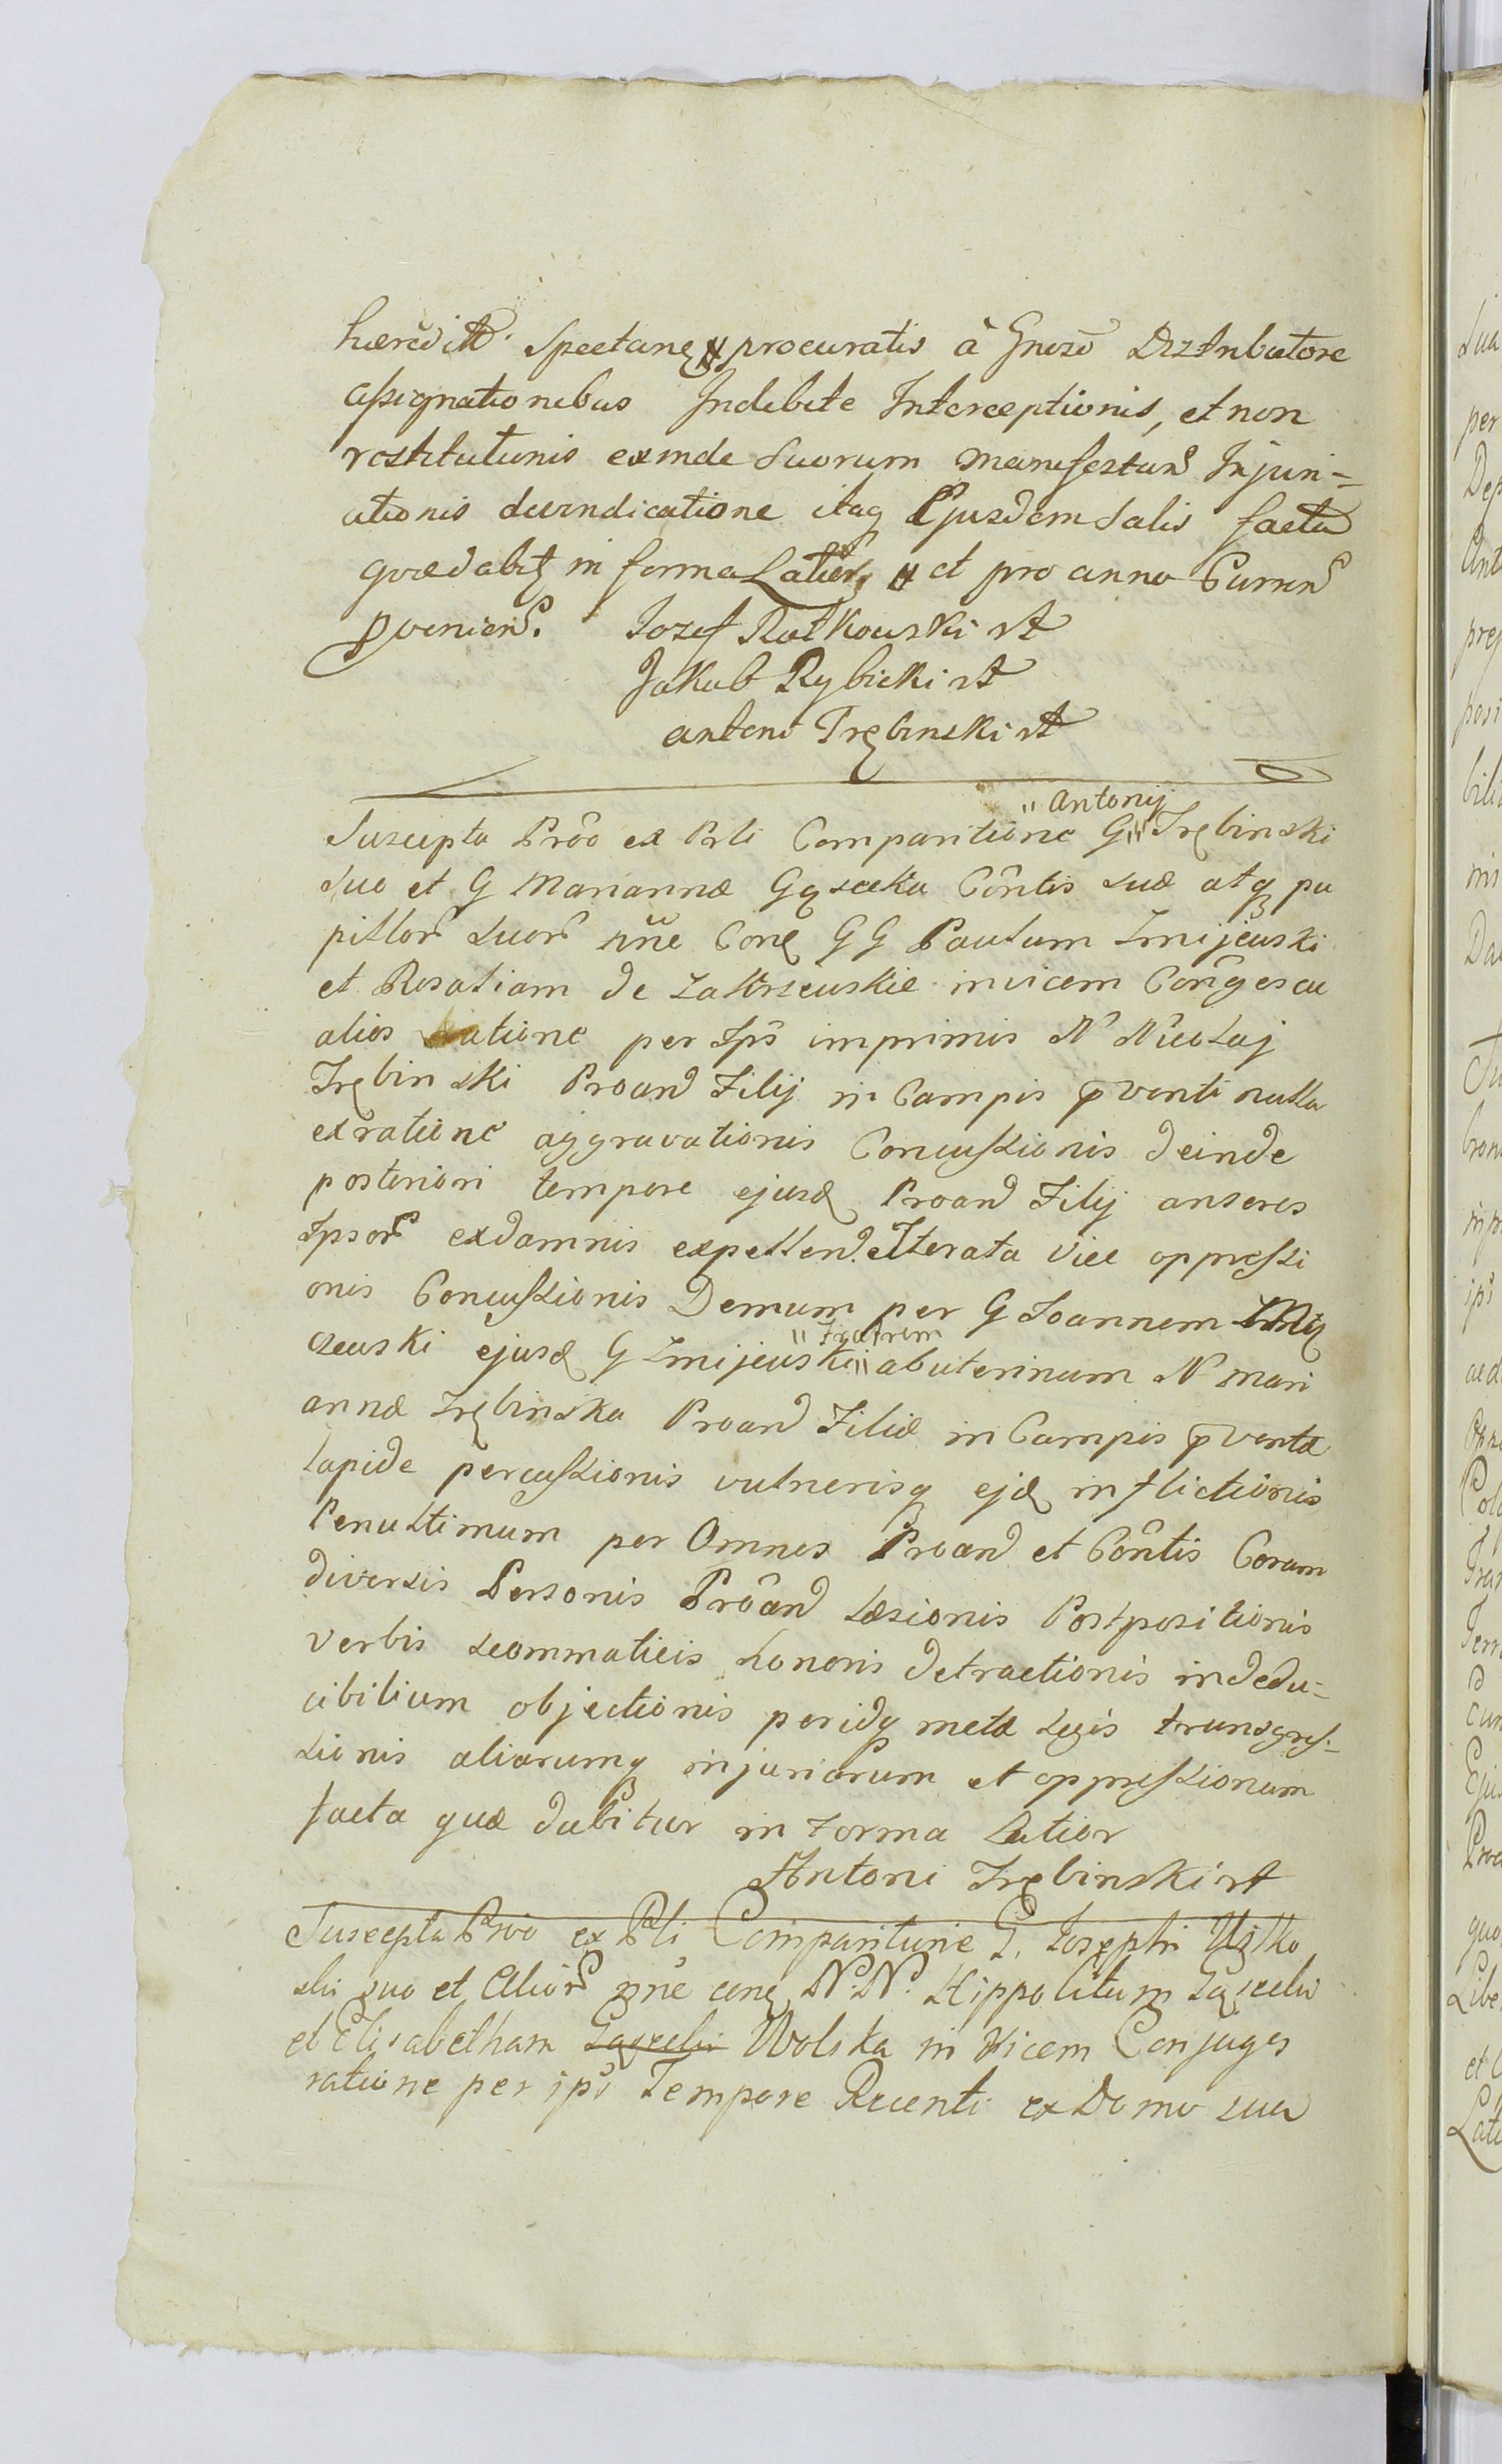 hæredit. Spectanę procuratis â Gnoso Disztributore
assignationibus Indebite Interceptionis, et non
restitutionis exinde Suorum manifestan Injuri=
ationis devindicatione itaq Ejusdem Salis facta
qvædabitʒ in forma Latiori et pro anno Curren
pveniens. Iozef Rutkowski A
Jakub Rybicki A
antoni Trębinski A
Suscepta Prôo ex Prti Comparitione G "Antonij" Trębinski
suo et G Mariannæ Gąsecka Cõntis suæ atq pu
pillor suor nñe Conę GG Paulum Zmijewski
et Rosaliam de Zakrzewskie invicem Conĝes eu
alios ratione per Ips imprimis N Nicolaj
Trębinski Proand Filij in Campis pventi nulla
ex ratione aggravationis Concussionis deinde
posteriori tempore ejusd Proand Filij anseres
Ipsor ex damnis expellend. Iterata Vice oppressi
onis Concussionis Demum per G Joannem
szewski ejusd G Zmijewski "Fratrem" ab uterinum N Mari
annæ Trębinska Proand Filiæ in Campis pventæ
lapide percussionis vulnerisq ejd inflictionis
Penultimum per Omnes Proand et Cõntis Coram
diversis Personis Prôand Læsionis Postpositionis
verbis scommaticis honoris detractionis indedu=
cibilium objectionis peridq metæ Legis transgres=
sionis aliarumq injuriarum et oppressionum
facta quæ dabitur in forma Latior
Antoni Trębinski A
Suscepta Prôo ex Pti Comparitione G. Josephi
suo et Alior nñe conę N:N: Hippolitum Gąsecki
et Elisabetham Gąsecki Wolska in Vicem Conjuges
ratione per ips Tempore Recenti ex Domo sua